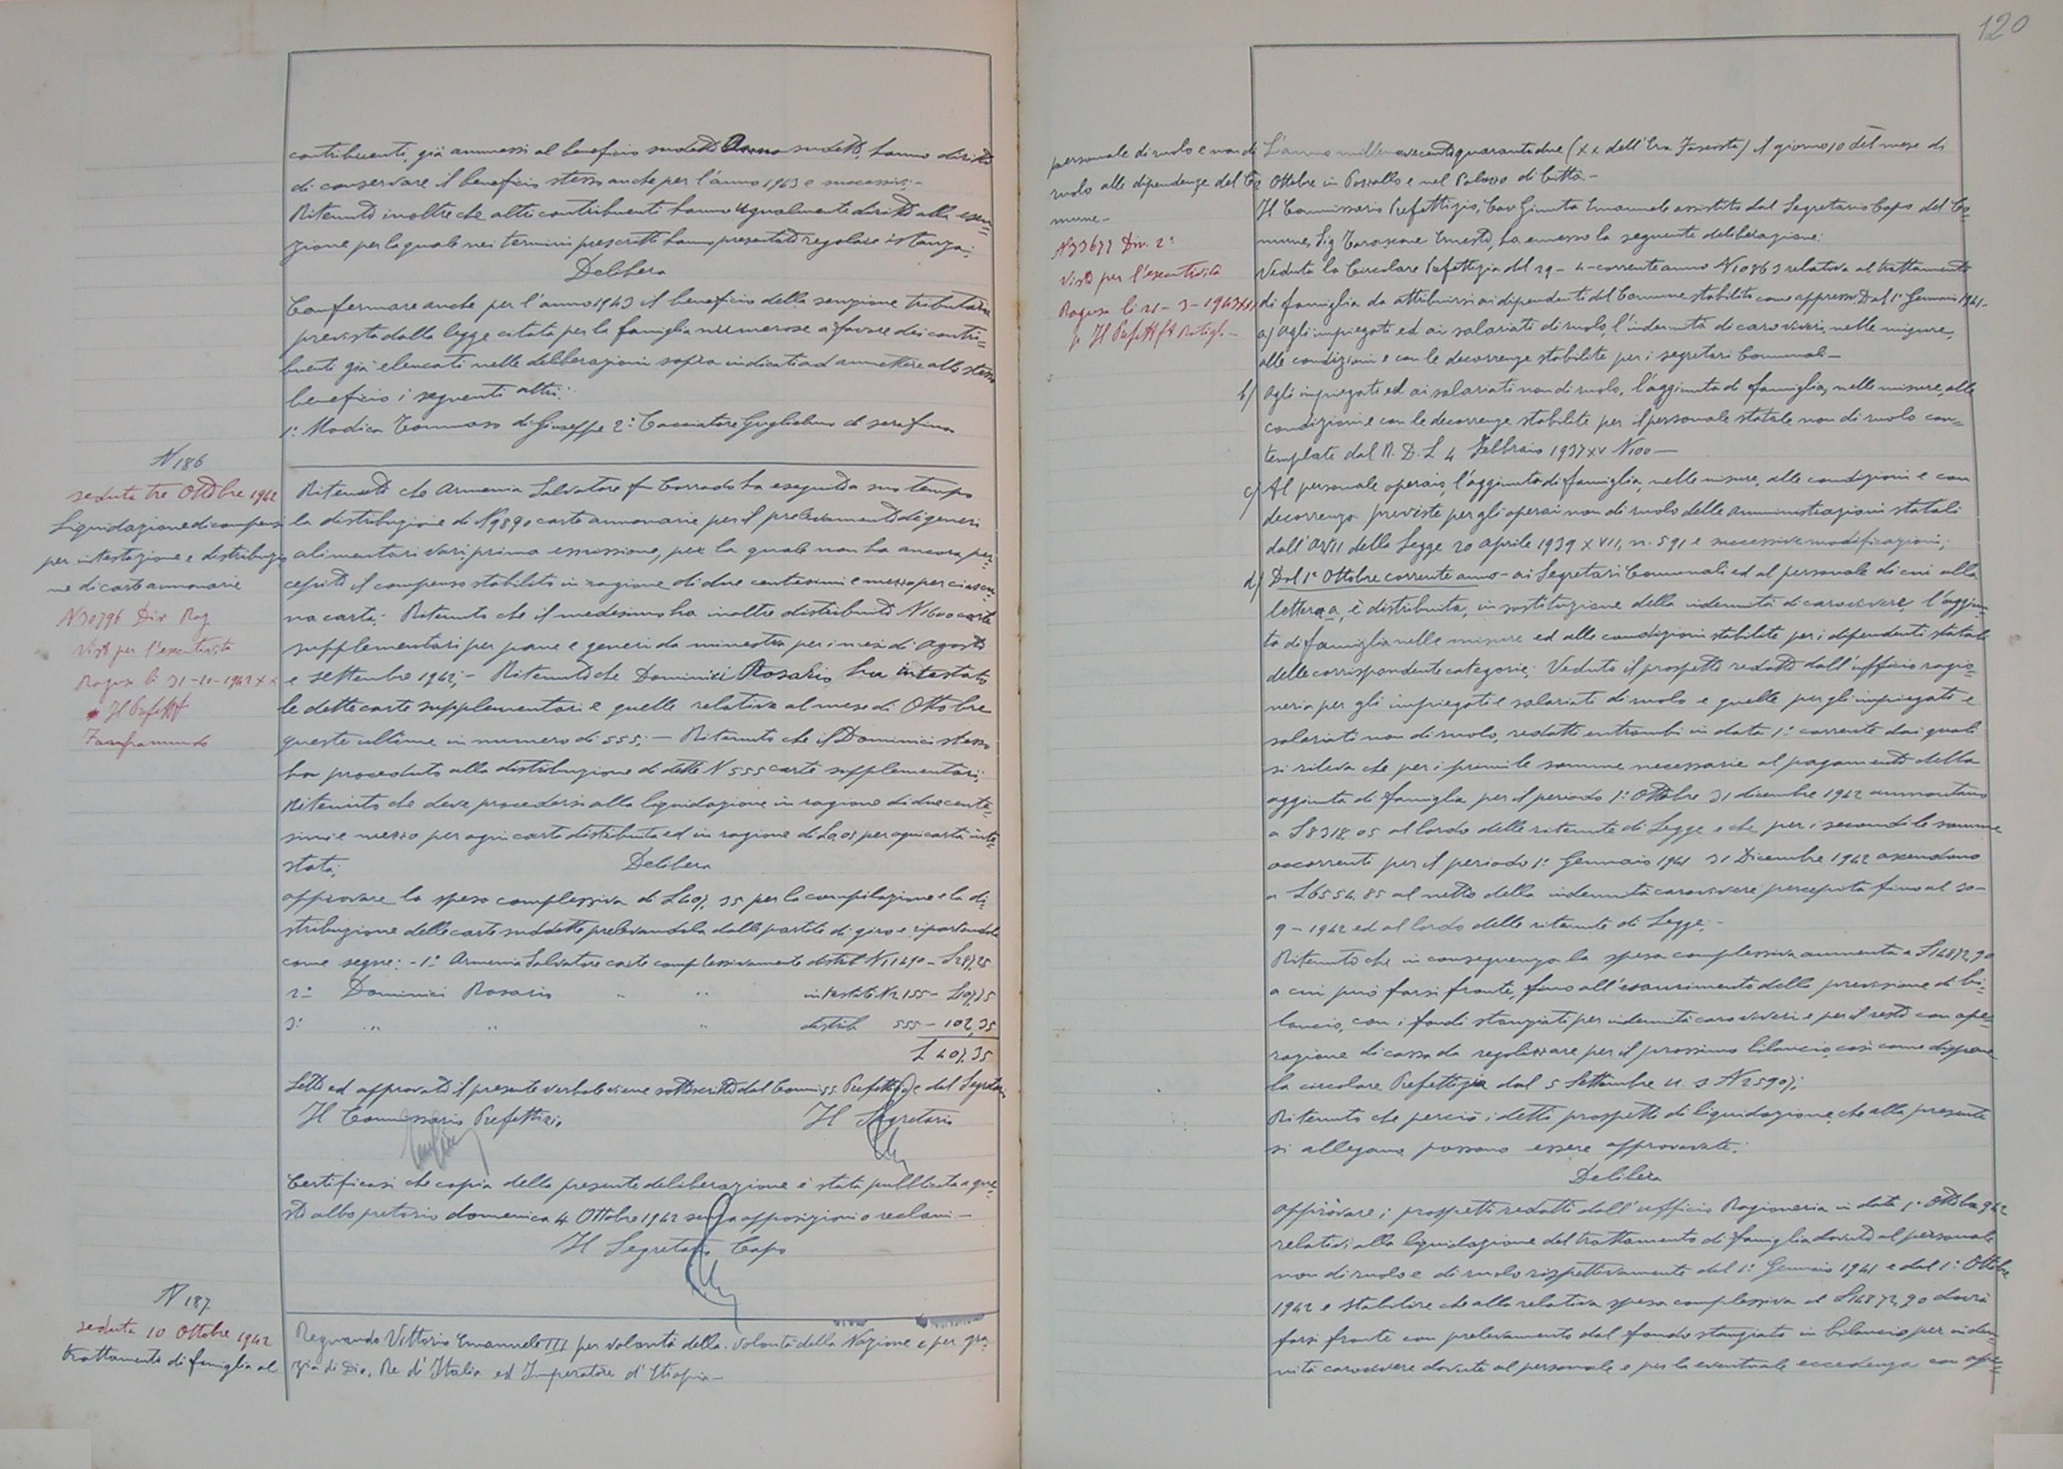 contribuenti, già ammessi al beneficio sudetto Anno sudetto, hanno diritto
di conservare il beneficio stesso anche per l'anno 1943 e successivi;-
Ritenuto inoltre che altri contribuenti hanno ugualmente diritto alla esen=
zione per la quale nei termini prescritti hanno presentato regolare istanza;
Delibera
Confermare anche per l'anno 1943 il beneficio della esenzione tributaria
prevista dalla legge citata per la famiglia numerose a favore dei contri=
buenti già elencati nelle deliberazioni sopra indicati ad ammettere allo stesso
beneficio i seguenti altri:
1° Modica Tommaso di Giuseppe 2° Cacciatore Guglielmo di Serafino
N 186
seduta tre Ottobre 1942
Liquidazione di compensi
per intestazione e distribuzio
ne di carte annonarie
N 30796 Div Rag
Visto per l'esecutività
Ragusa li 31-10-1942 XX
Il Prefetto
Ritenuto che Armenia Salvatore fu Corrado ha eseguita suo tempo
la distribuzione di N 9890 carte annonarie per il prelevamento di generi
alimentari vari prima emissione, per la quale non ha ancora per=
cepito il compenso stabilito in ragione di due centesimi e mezzo per ciascu
na carta; Ritenuto che il medesimo ha inoltre distribuito N 1600 carte
supplementari per pane e generi da minestra per i mesi di Agosto
e settembre 1942;- Ritenuto che Dominici Rosario ha intestato
le dette carte supplementari e quelle relative al mese di Ottobre
queste ultime in numero di 555;- Ritenuto che il Dominici stesso
ha proceduto alla distribuzione di dette N 555 carte supplementari;
Ritenuto che deve procedersi alla liquidazione in ragione di due cente=
simi e mezzo per ogni carta distribuita ed in ragione di L 0,05 per ogni carta inte=
stata;
Delibera
approvare la spesa complessiva di L 407,35 per la compilazione e la di=
stribuzione delle carte suddette prelevandola dalle partite di giro e ripartendola
come segue: - 1° Armenia Salvatore carte complessivamente distrib N 11490 - L 287,25
2° Dominici Rosario " " intestate N 2155 - L 107,75
3° " " " distrib 555 - 102,35
L 407,35
Letto ed approvato il presente verbale viene sottoscritto dal Commiss. Prefettizio e dal Segretario
Il Commissario Prefettizio Il Segretario
Certificasi che copia della presente deliberazione è stata pubblicata a que=
sto albo pretorio domenica 4 Ottobre 1942 senza opposizioni o reclami -
Il Segretario Capo
N 187
seduta 10 Ottobre 1942
trattamento di famiglia al
Regnando Vittorio Emanuele III per volontà della volontà della Nazione e per gra=
zia di Dio, Re d'Italia ed Imperatore d'Etiopia -
120
personale di ruolo e non di
ruolo alle dipendenze del Co
mune -
N 33677 Div. 2ª
Visto per l'esecutività
Ragusa li 21-3-1943 XXI
p Il Prefetto
L'anno millenovecentoquarantadue (XX dell'Era Fascista) il giorno 10 del mese di
Ottobre in Pozzallo e nel Palazzo di Città -
Il Commissario Prefettizio, Cav Giunta Emanuele assistito dal Segretario Capo del Co=
mune, Sig Tarascone Ernesto, ha emesso la seguente deliberazione:
Veduta la Circolare Prefettizia del 29-4-corrente anno N 10863 relativa al trattamento
di famiglia da attribuirsi ai dipendenti del Comune stabilito come appresso: Dal 1° Gennaio 1941-
a) Agli impiegati ed ai salariati di ruolo, l'indennità di caroviveri, nelle misure,
alle condizioni e con le decorrenze stabilite per i segretari Comunali -
b) Agli impiegati ed ai salariati non di ruolo, l'aggiunta di famiglia, nelle misure, alle
condizioni e con le decorrenze stabilite per il personale statale non di ruolo con=
templato dal R.D.L 4 Febbraio 1937 XV N 100 -
c) Al personale operaio, l'aggiunta di famiglia, nelle misure, alle condizioni e con
decorrenza previste per gli operai non di ruolo delle Amministrazioni statali
dall'Art 11 della Legge 20 Aprile 1939 XVII, n. 591 e successive modificazioni;
d) Dal 1° Ottobre corrente anno - ai Segretari Comunali ed al personale di cui alla
lettera a, è distribuita, in sostituzione della indennità di caroviveri l'aggiun=
ta di famiglia nelle misure ed alle condizioni stabilite per i dipendenti statali
delle corrispondente categorie; Veduto il prospetto redatto dall'ufficio ragio=
neria per gli impiegati e salariati di ruolo e quello per gli impiegati e
salariati non di ruolo, redatti entrambi in data 1° corrente dai quali
si rileva che per i primi le somme necessarie al pagamento della
aggiunta di famiglia per il periodo 1° Ottobre 31 dicembre 1942 ammontano
a L 8318,05 al lordo delle ritenute di Legge e che per i secondi le somme
occorrenti per il periodo 1° Gennaio 1941 31 Dicembre 1942 ascendono
a L 6554,85 al netto della indennità caroviveri percepita fino al 30-
9-1942 ed al lordo delle ritenute di Legge;-
Ritenuto che in conseguenza la spesa complessiva ammonta a L 14872,90
a cui può farsi fronte, fino all'esaurimento della previsione di bi=
lancio, con i fondi stanziati per indennità caroviveri e per il resto con ope=
razione di cassa da regolizzare per il prossimo bilancio, così come dispone
la circolare Prefettizia dal 5 Settembre u. s N 25907;
Ritenuto che perciò i detti prospetti di liquidazione che alla presente
si allegano possano essere approvati;
Delibera
approvare i prospetti redatti dall'ufficio Ragioneria in data 1° Ottobre 942
relativi alla liquidazione del trattamento di famiglia dovuto al personale
non di ruolo e di ruolo rispettivamente dal 1° Gennaio 1941 e dal 1° Ottobre
1942 e stabilire che alla relativa spesa complessiva di L 14872,90 dovrà
farsi fronte con prelevamento dal fondo stanziato in bilancio per inden=
nità caroviveri dovute al personale e per la eventuale eccedenza con ope=